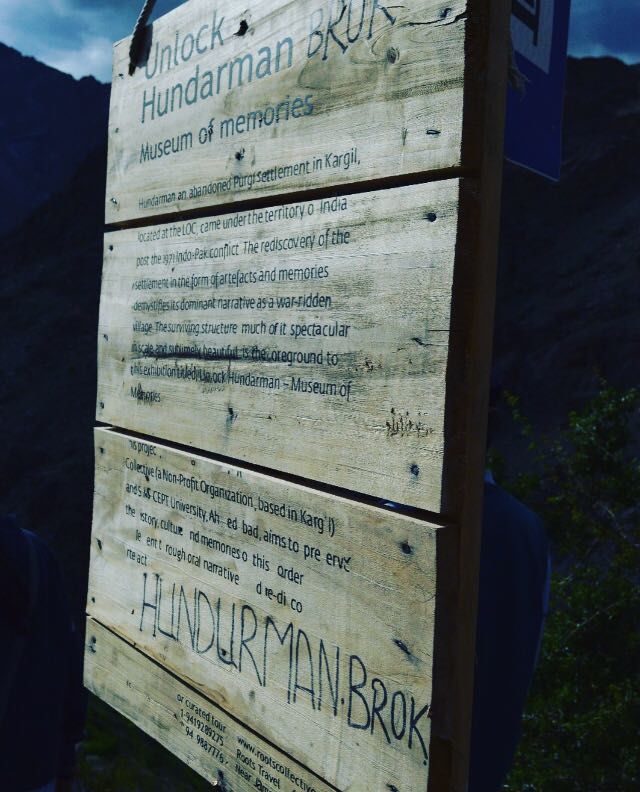 Unlock
Hundarman BROK
Museum of memories
Hundarman an abandoned Purgi settlement in Kargil,
located at the LOC, came under the territory o India
post the 1971 Indo-Pak conflict The rediscovery of the
settlement in the form of artefacts and memories
demystifies its dominant narrative as a war-ridden
village The surviving structure much of it spectacular
in scale and sublimely beautiful is the foreground to
this exhibition titled, Unlock Hundarman – Museum of
Memories
his projec
Collective (a Non-Profit Organization, based in Karg l)
and S CEPT University, Ah ed bad, aims to pre erve
the istory, culture nd memories o this order
through oral narrative d re-di co
HUNDURMAN.BROK
or curated tour
www.rootscollective
Roots Travel
Near